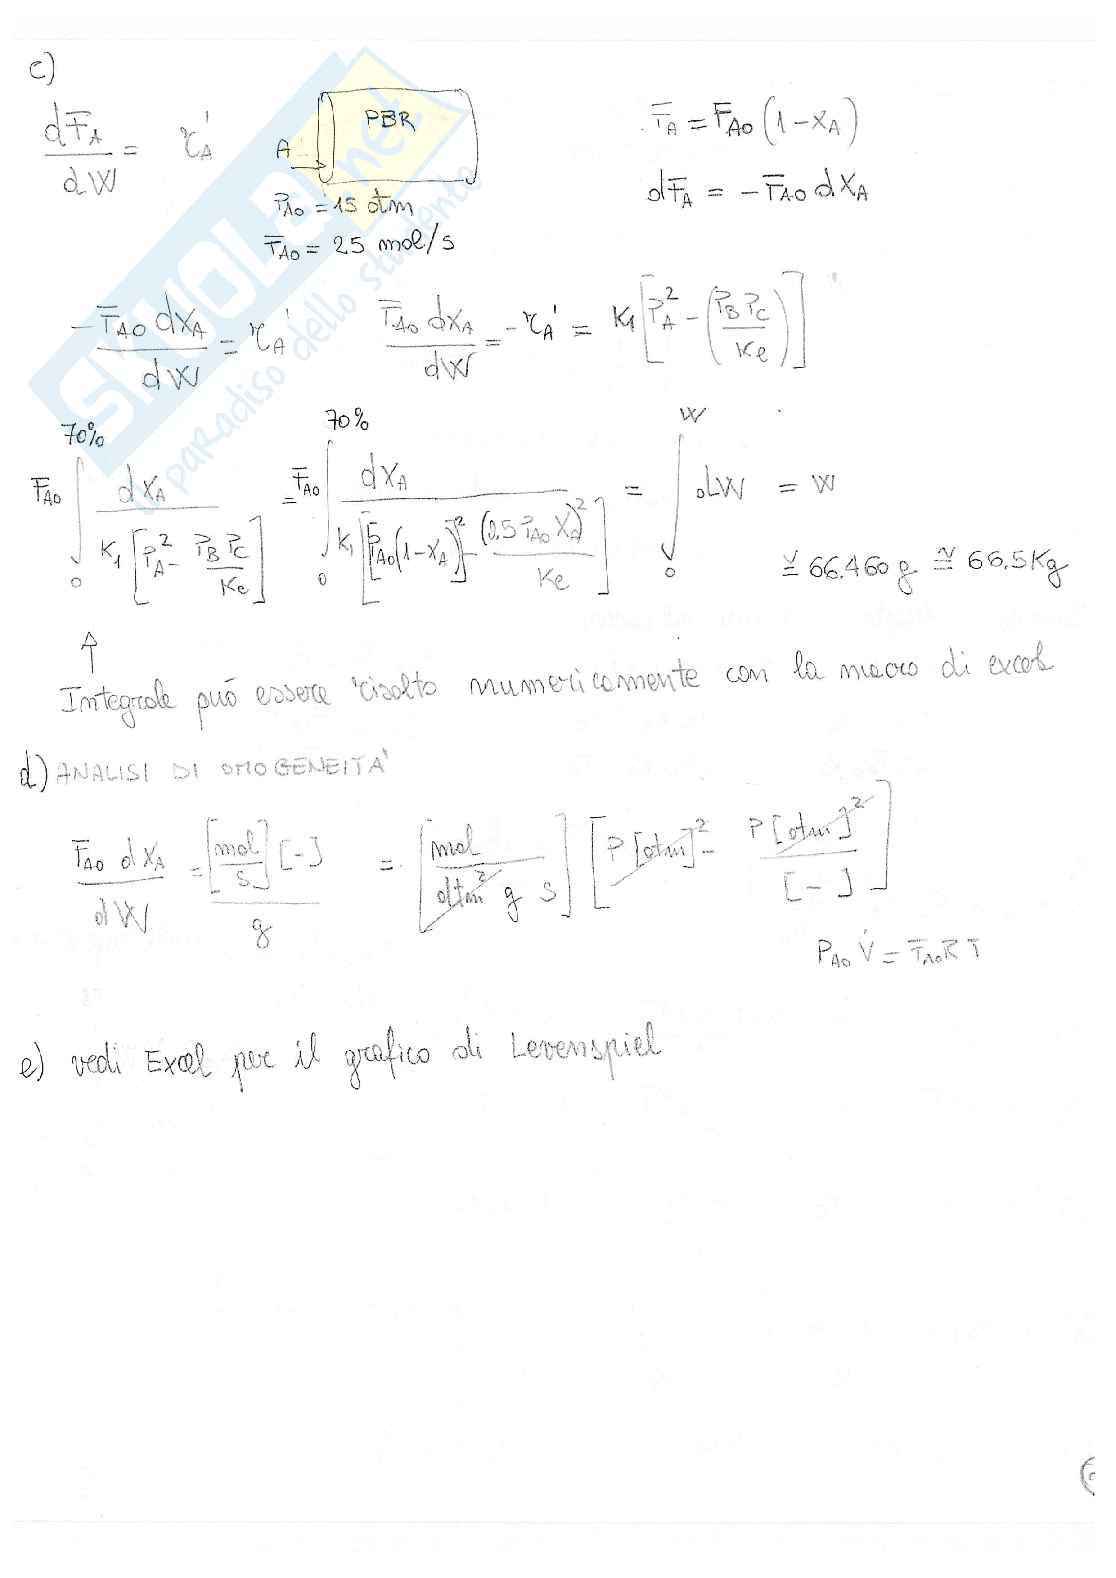 c)
dF_A/dW = r_A'
A
PBR
P_A0 = 15 atm
F_A0 = 25 mol/s
F_A = F_A0 (1-x_A)
dF_A = -F_A0 dx_A
-F_A0 dx_A/dW = r_A'   F_A0 dx_A/dW = -r_A' = K1 [P_A^2 - (P_B P_C/Ke)]
F_A0 ∫_0^70% dx_A / K1 [P_A^2 - P_B P_C/Ke] = F_A0 ∫_0^70% dx_A / K1 [[P_A0 (1-x_A)]^2 - (0.5 P_A0 x_A)^2/Ke] = ∫_0^W dW = W
≅ 66.460 g ≅ 66.5 Kg
↑
Integrale può essere risolto numericamente con la macro di excel
d) ANALISI DI OMOGENEITA'
F_A0 dx_A/dW = [mol/s] [-]/g = [mol/atm^2 g s] [P [atm]^2 - P [atm]^2/[-]]
P_A0 V̇ = F_A0 R T
e) vedi Excel per il grafico di Levenspiel
SKUOLA.net
il paradiso dello studente